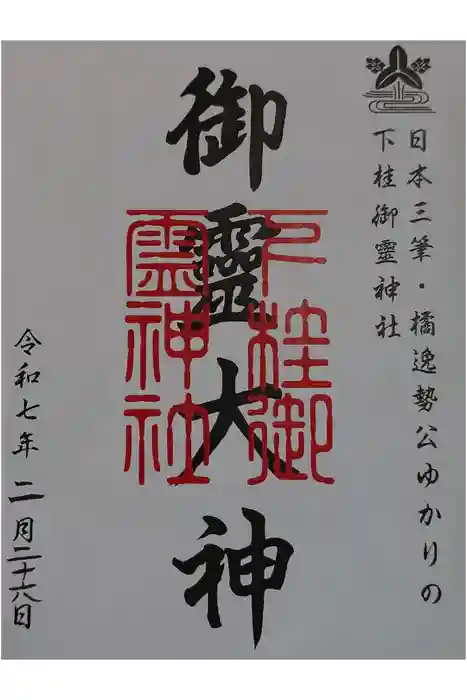 日本三筆・橘逸勢公ゆかりの
下桂御霊神社
御靈大神
下桂御
霊神社
令和七年二月二十六日